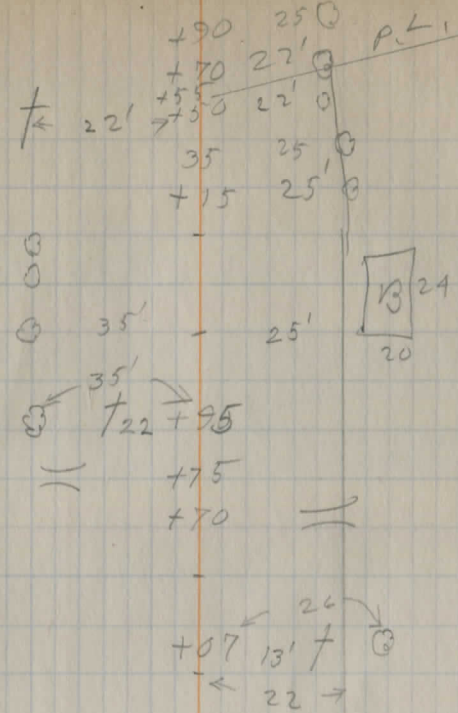 +90 25
+70 22' P.L.
+55
22' +50 22'
35 25
+15 25'
B 24
35' 25'
20
35'
22 +95
+75
+70
26
+07 13'
22